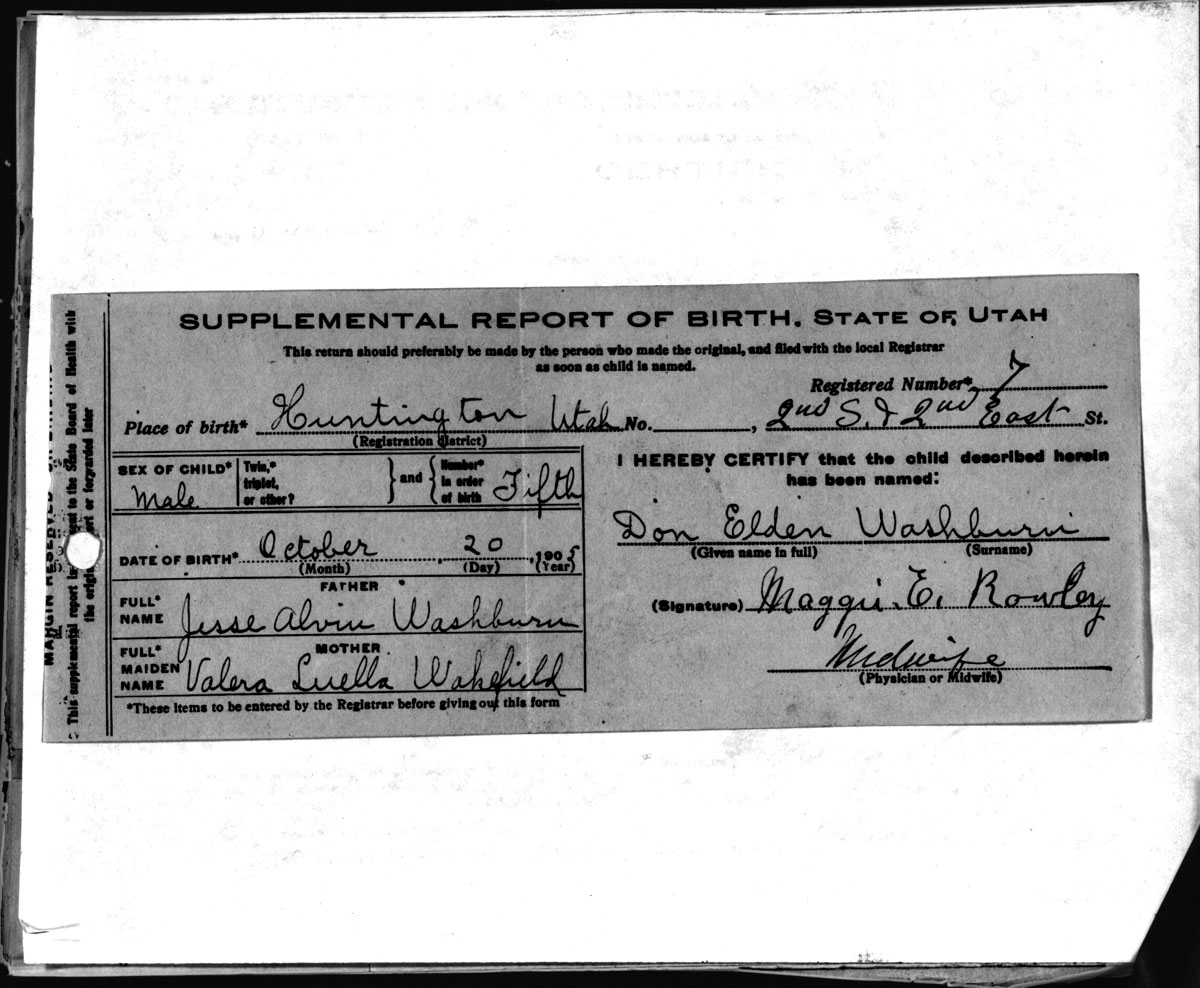 SUPPLEMENTAL REPORT OF BIRTH. STATE OF UTAH
This return should preferably be made by the person who made the original, and filed with the local Registrar
as soon as child is named.
Registered Number* 7
Place of birth* Huntington Utah No. , 2nd S. & 2nd East St.
(Registration district)
SEX OF CHILD* Male
Twin,* triplet, or other?
and
Number* in order of birth Fifth
DATE OF BIRTH* October, 20, 1905
(Month) (Day) (Year)
FATHER
FULL* NAME Jesse Alvin Washburn
MOTHER
FULL* MAIDEN NAME Valera Luella Wakefield
*These items to be entered by the Registrar before giving out this form
I HEREBY CERTIFY that the child described herein
has been named:
Don Elden Washburn
(Given name in full) (Surname)
(Signature) Maggie E. Rowley
Midwife
(Physician or Midwife)
MARGIN RESERVED
This supplemental report sent to the State Board of Health with
the original or forwarded later